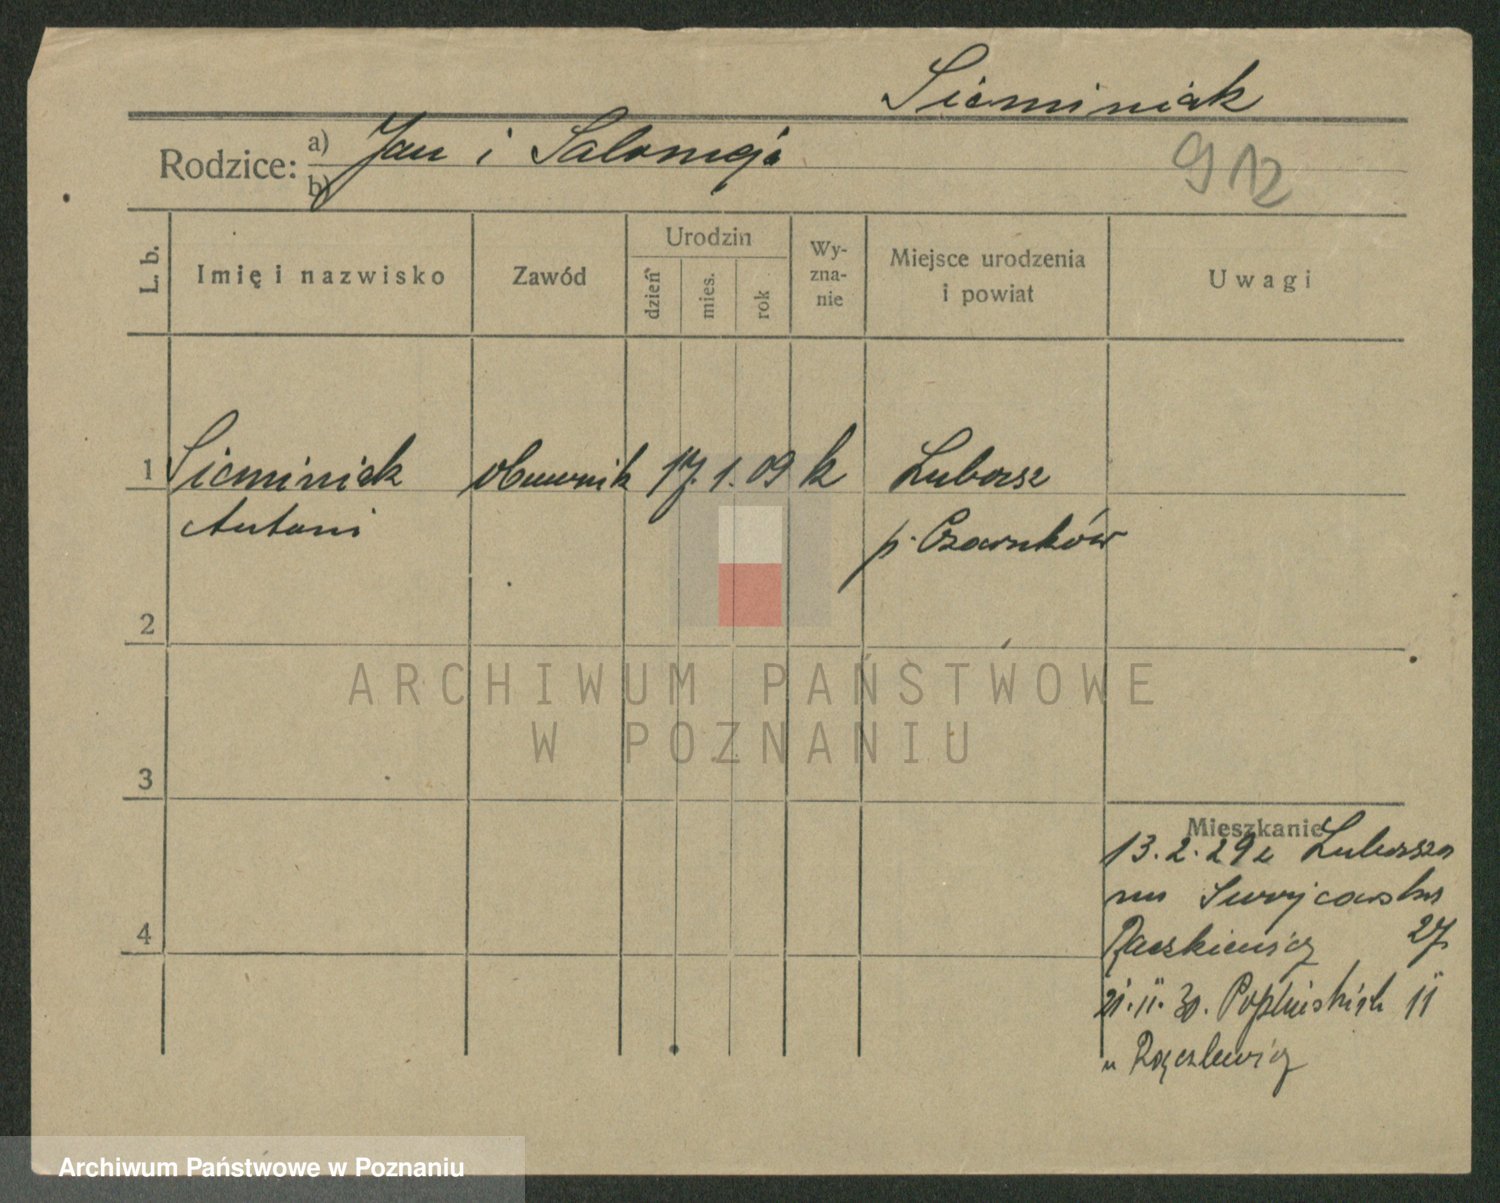 Sieminiak
Rodzice: a) Jan i Salomeja
b)
912
L. b.
Imię i nazwisko
Zawód
Urodzin
dzień
mies.
rok
Wy-
zna-
nie
Miejsce urodzenia
i powiat
Uwagi
1 Sieminiak obuwnik 17. 1. 09 k Lubasz
Antoni p. Czarnków
2
ARCHIWUM PAŃSTWOWE
W POZNANIU
3
Mieszkanie
13. 2. 29 z Lubasza
na
27
4
21. 11. 30. 11
u
Archiwum Państwowe w Poznaniu